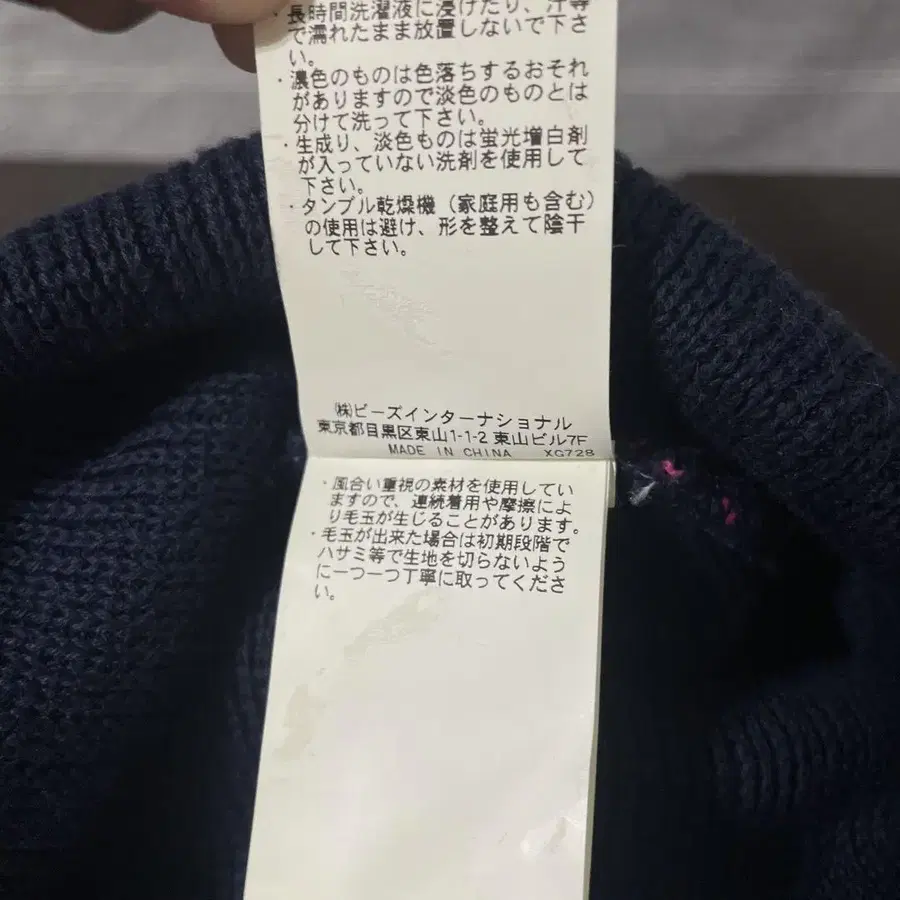 ・長時間洗濯液に浸けたり、汗等
で濡れたまま放置しないで下さ
い。
・濃色のものは色落ちするおそれ
がありますので淡色のものとは
分けて洗って下さい。
・生成り、淡色ものは蛍光増白剤
が入っていない洗剤を使用して
下さい。
・タンブル乾燥機（家庭用も含む）
の使用は避け、形を整えて陰干
して下さい。
㈱ビーズインターナショナル
東京都目黒区東山1-1-2 東山ビル7F
MADE IN CHINA XG728
・風合い重視の素材を使用してい
ますので、連続着用や摩擦によ
り毛玉が生じることがあります。
・毛玉が出来た場合は初期段階で
ハサミ等で生地を切らないよう
に一つ一つ丁寧に取ってくださ
い。